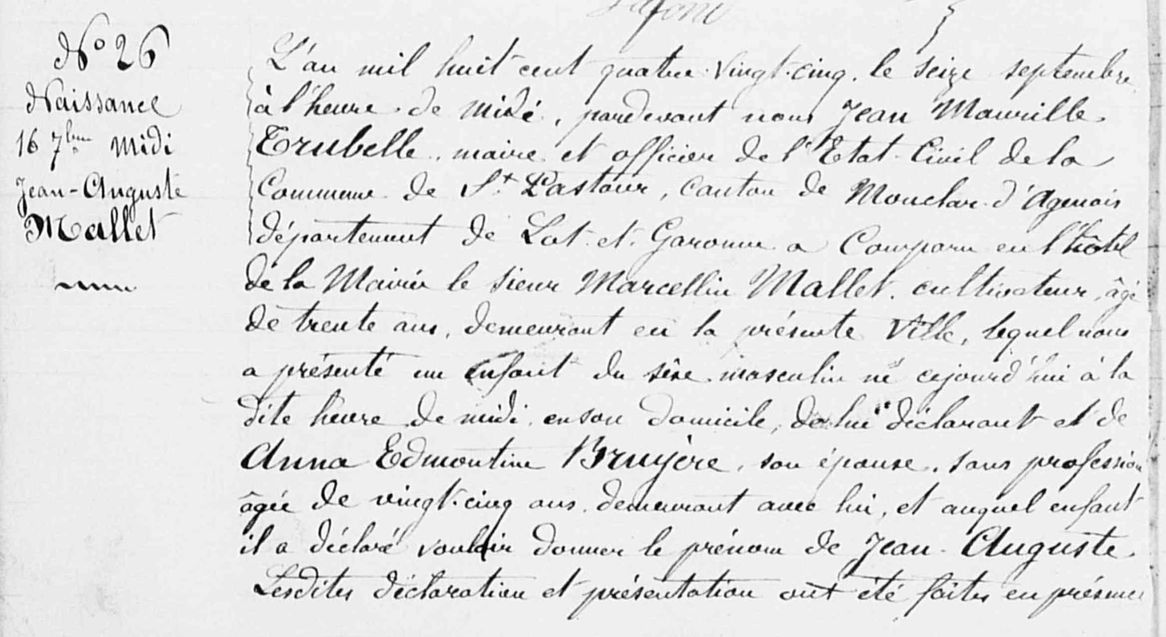 N° 26
Naissance
16 7bre Midi
Jean-Auguste
Mallet
L'an mil huit cent quatre-vingt-cinq, le seize septembre
à l'heure de midi, pardevant nous Jean Maurille
Trubelle, maire et officier de l'Etat-Civil de la
Commune de St Pastour, canton de Monclar-d'Agenais
département de Lot-et-Garonne a comparu en l'hôtel
de la Mairie le sieur Marcellin Mallet, cultivateur, âgé
de trente ans, demeurant en la présente Ville, lequel nous
a présenté un enfant du sèxe masculin né cejourd'hui à la
dite heure de midi, en son domicile, de lui déclarant et de
Anna Edmontine Bruyère, son épouse, sans profession
âgée de vingt-cinq ans, demeurant avec lui, et auquel enfant
il a déclaré vouloir donner le prénom de Jean-Auguste.
Lesdites déclaration et présentation ont été faites en présence